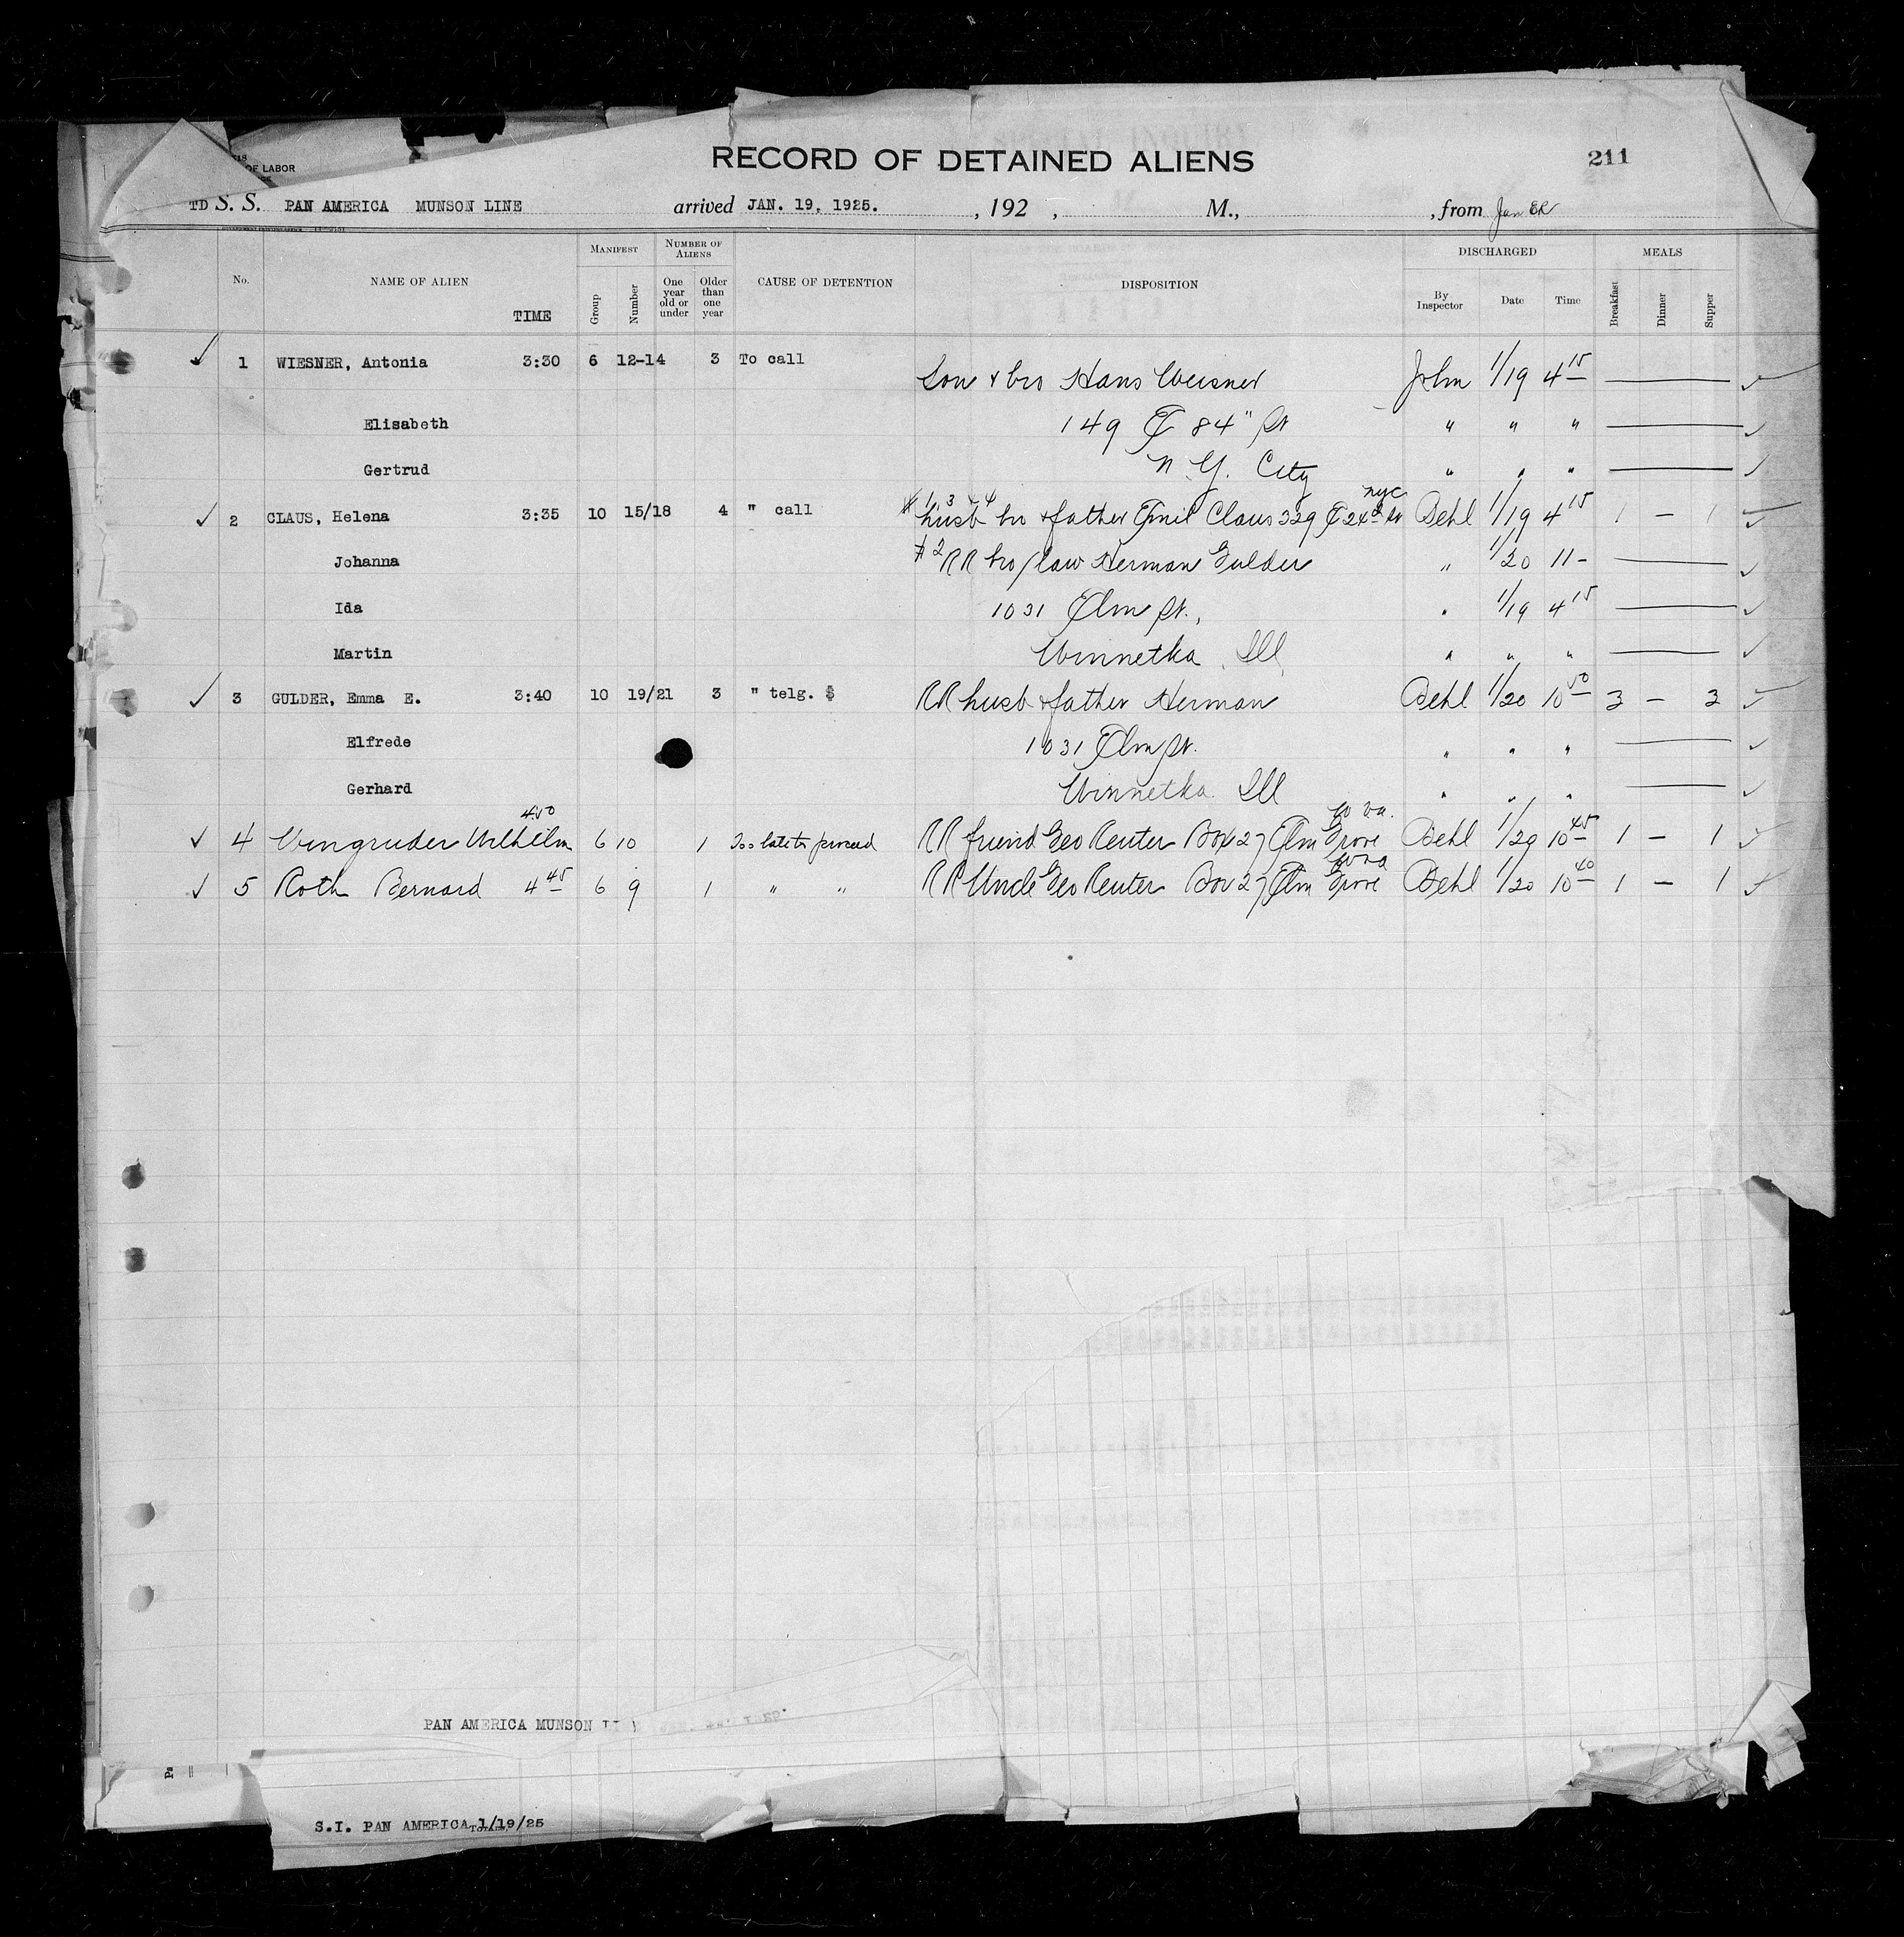 OF LABOR
RECORD OF DETAINED ALIENS 211
TD S. S. PAN AMERICA MUNSON LINE arrived JAN. 19, 1925. , 192 , M., , from
MANIFEST NUMBER OF ALIENS DISCHARGED MEALS
No. NAME OF ALIEN TIME Group Number One year old or under Older than one year CAUSE OF DETENTION DISPOSITION By Inspector Date Time Breakfast Dinner Supper
1 WIESNER, Antonia 3:30 6 12-14 3 To call Son & bro Hans Weisner John 1/19 4 15
Elisabeth 149 E 84" St " " "
Gertrud N. Y. City " " "
nyc
2 CLAUS, Helena 3:35 10 15/18 4 " call # 1, 3 & 4 husb bro & father Emil Claus 329 E 24 St Behl 1/19 4 15 1 – 1
Johanna # 2 RR bro/law Herman Gulder " 1/20 11 -
Ida 1031 Elm St., " 1/19 4 15
Martin Winnetka, Ill " " "
3 GULDER, Emma E. 3:40 10 19/21 3 " telg. $ RR husb & father Herman Behl 1/20 10 50 3 – 3
Elfrede 1031 Elm St. " " "
Gerhard Winnetka. Ill " " "
4 50 W va.
4 Weingruder Wilhelm 6 10 1 Too late to proceed RR friend Geo Reuter Box 27 Elm Grove Behl 1/20 10 45 1 – 1
W va
5 Roth Bernard 4 45 6 9 1 " " RR Uncle Geo Reuter Box 27 Elm Grove Behl 1/20 10 40 1 – 1
PAN AMERICA MUNSON
S.I. PAN AMERICA 1/19/25